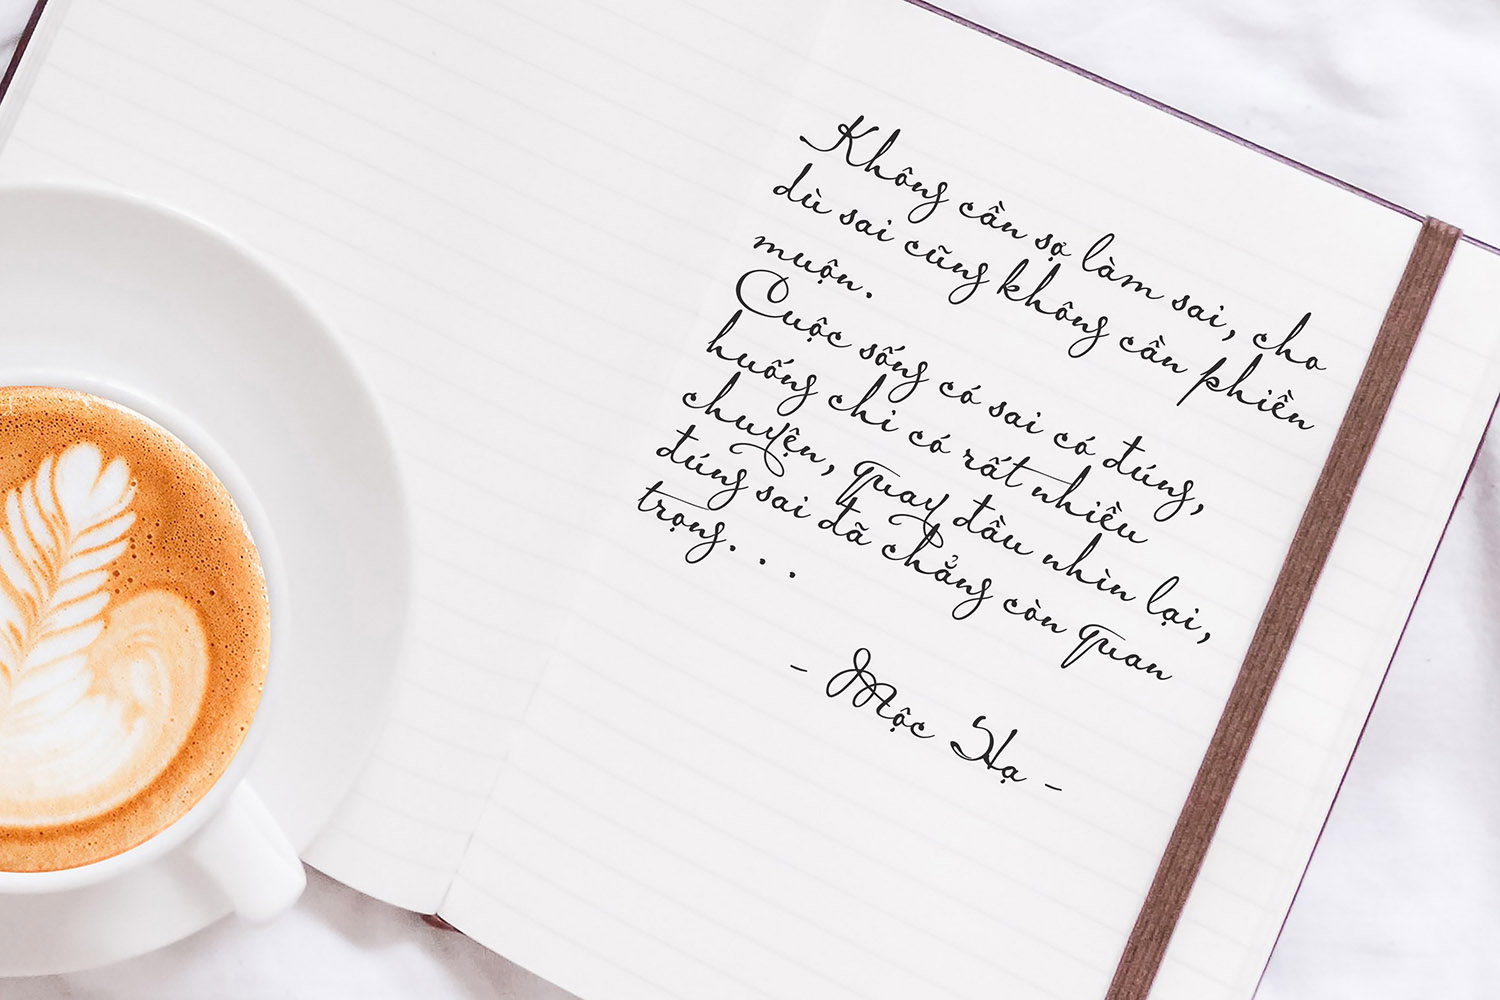 Không cần sợ làm sai, cho
dù sai cũng không cần phiền
muộn.
Cuộc sống có sai có đúng,
huống chi có rất nhiều
chuyện, quay đầu nhìn lại,
đúng sai đã chẳng còn quan
trọng...
- Mộc Hạ -